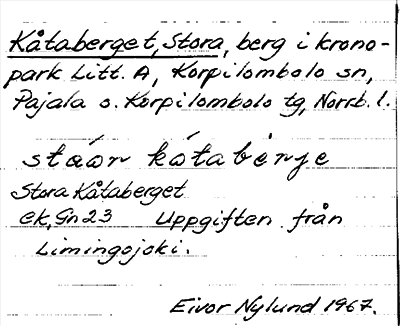 Kåtaberget, Stora, berg i krono-
park Litt. A, Korpilombolo sn,
Pajala o. Korpilombolo tg, Norrb. l.
stáòr kátabérje
Stora Kåtaberget
ek, Gn 23 Uppgiften från
Limingojoki.
Eivor Nylund 1967.